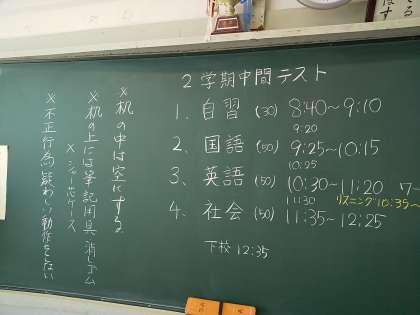 2学期中間テスト
1、自習(30) 8:40~9:10
9:20
2、国語(50) 9:25~10:15
10:25
3、英語(50) 10:30~11:20
リスニング10:35~
11:30
4、社会(50) 11:35~12:25
下校 12:35
×机の中は空にする
×机の上には筆記用具 消しゴム
×シャー芯ケース
×不正行為 疑わしい動作をしない